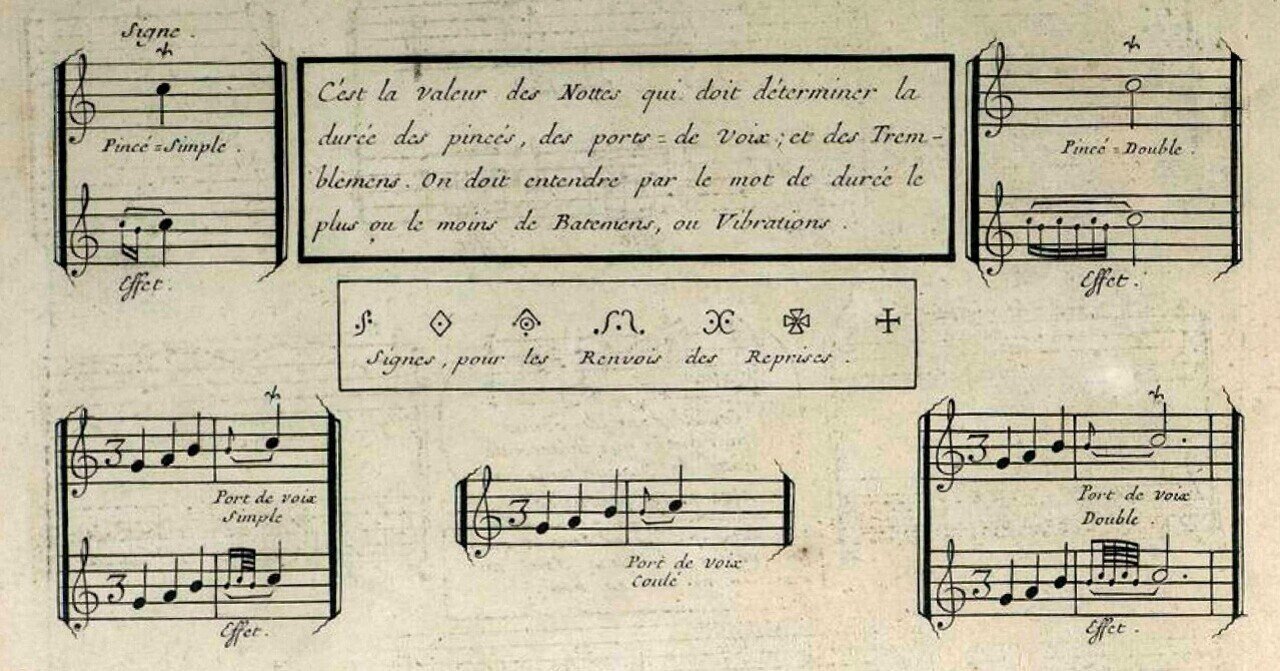 Signe.
Pincé=Simple.
Effet.
C'est la valeur des Nottes qui doit déterminer la
durée des pincés, des ports=de Voix; et des Trem-
blemens. On doit entendre par le mot de durée le
plus ou le moins de Batemens, ou Vibrations.
Pincé=Double.
Effet.
Signes, pour les Renvois des Reprises.
3
Port de voix
Simple.
3
Effet.
3
Port de voix
Coulé.
3
Port de voix
Double.
3
Effet.